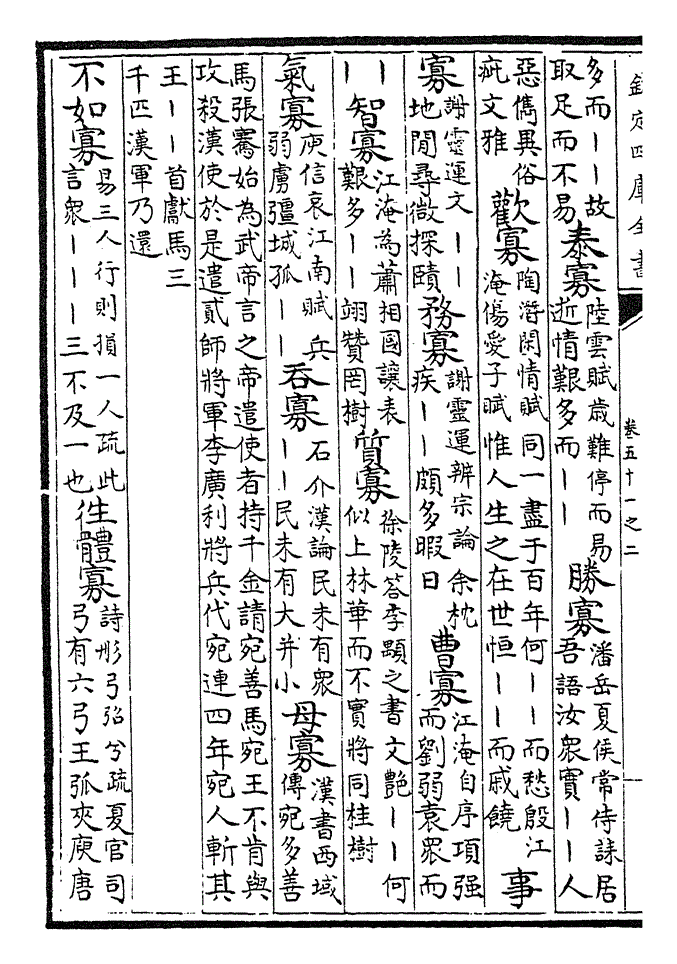 欽定四庫全書 卷五十一之二
多而丨丨故
取足而不易
泰寡
陸雲賦歲難停而易
逝情艱多而丨丨
勝寡
潘岳夏侯常侍誄居
吾語汝衆實丨丨人
惡儁異俗
疵文雅
歡寡
陶潛閑情賦同一盡于百年何丨丨而愁殷江
淹傷愛子賦惟人生之在世恒丨丨而戚饒
事
寡
謝靈運文丨丨
地閒尋微探賾
務寡
謝靈運辨宗論余枕
疾丨丨頗多暇日
曹寡
江淹自序項强
而劉弱袁衆而
丨丨
智寡
江淹為蕭相國讓表
艱多丨丨翊贊罔樹
質寡
徐陵答李顒之書文艷丨丨何
似上林華而不實將同桂樹
氣寡
庾信哀江南賦兵
弱虜彊城孤丨丨
吞寡
石介漢論民未有衆
丨丨民未有大并小
母寡
漢書西域
傳宛多善
馬張騫始為武帝言之帝遣使者持千金請宛善馬宛王不肯與
攻殺漢使於是遣貳師將軍李廣利將兵代宛連四年宛人斬其
王丨丨首獻馬三
千匹漢軍乃還
不如寡
易三人行則損一人疏此
言衆丨丨丨三不及一也
徃體寡
詩彤弓弨兮疏夏官司
弓有六弓王弧夾庾唐